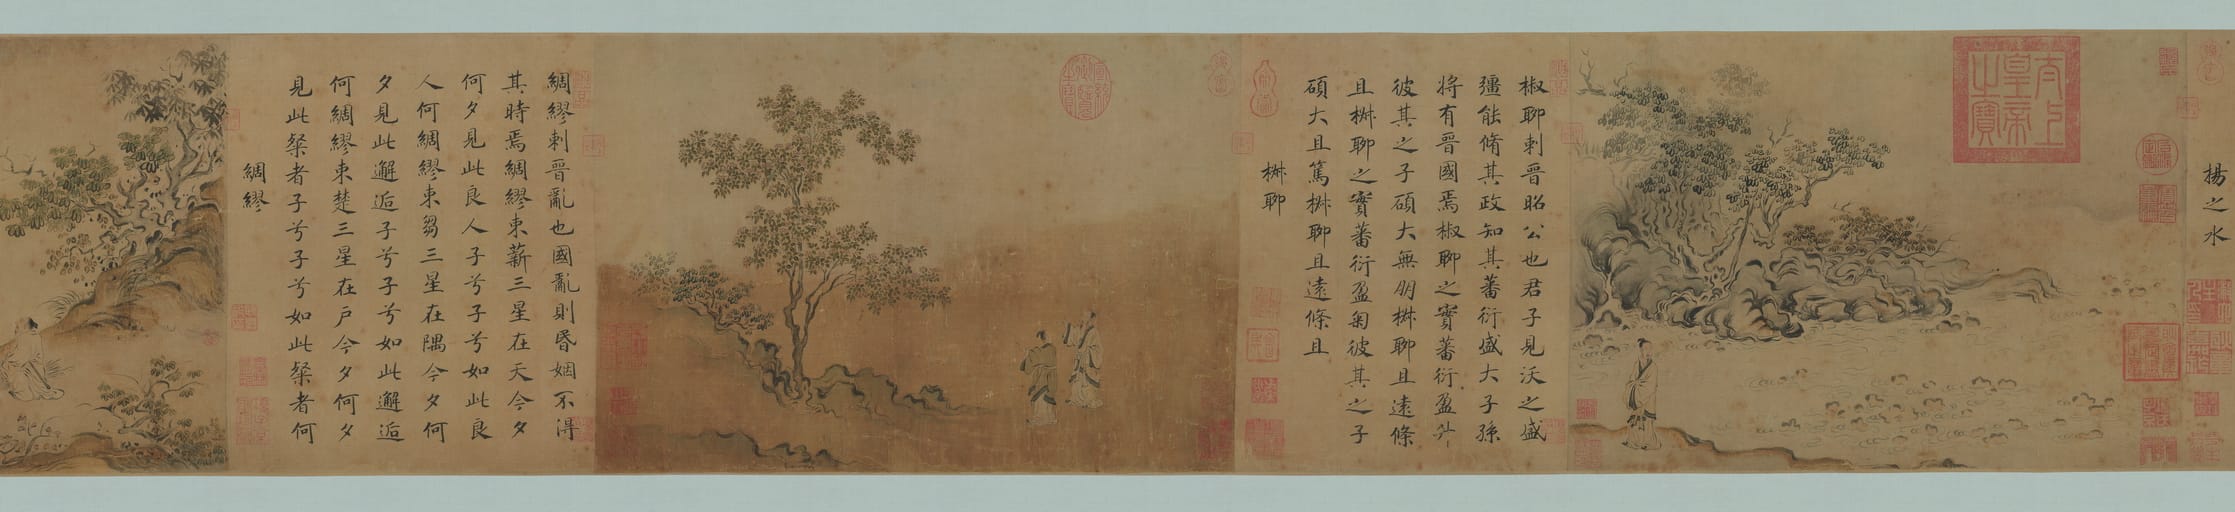 揚之水
太上皇帝之寶
椒聊刺晉昭公也君子見沃之盛
彊能脩其政知其蕃衍盛大子孫
將有晉國焉椒聊之實蕃衍盈升
彼其之子碩大無朋椒聊且遠條
且椒聊之實蕃衍盈匊彼其之子
碩大且篤椒聊且遠條且
椒聊
綢繆刺晉亂也國亂則昏姻不得
其時焉綢繆束薪三星在天今夕
何夕見此良人子兮子兮如此良
人何綢繆束芻三星在隅今夕何
夕見此邂逅子兮子兮如此邂逅
何綢繆束楚三星在戶今夕何夕
見此粲者子兮子兮如此粲者何
綢繆